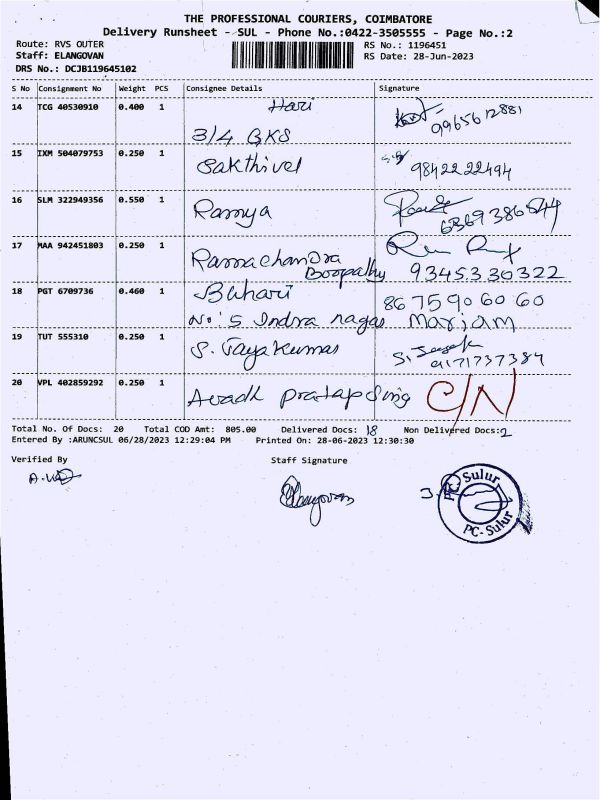 THE PROFESSIONAL COURIERS, COIMBATORE
Delivery Runsheet - SUL - Phone No.:0422-3505555 - Page No.:2
Route: RVS OUTER RS No.: 1196451
Staff: ELANGOVAN RS Date: 28-Jun-2023
DRS No.: DCJB119645102
S No Consignment No Weight PCS Consignee Details Signature
14 TCG 40530910 0.400 1 Hari 9965612881
3/4 GKS
15 IXM 504079753 0.250 1 Sakthivel 9842222494
16 SLM 322949356 0.550 1 Ramya 6369386544
17 MAA 942451803 0.250 1 Ramachandra
Boopathy 9345330322
18 PGT 6709736 0.460 1 Bihari 8675906060
No: 5 Indra nagar Mariam
19 TUT 555310 0.250 1 S. Jayakumar 9171737384
20 VPL 402859292 0.250 1 Avadh Pratap Sing C/N
Total No. Of Docs: 20 Total COD Amt: 805.00 Delivered Docs: 18 Non Delivered Docs:2
Entered By :ARUNCSUL 06/28/2023 12:29:04 PM Printed On: 28-06-2023 12:30:30
Verified By Staff Signature
Elangovan
PC Sulur
PC-Sulur